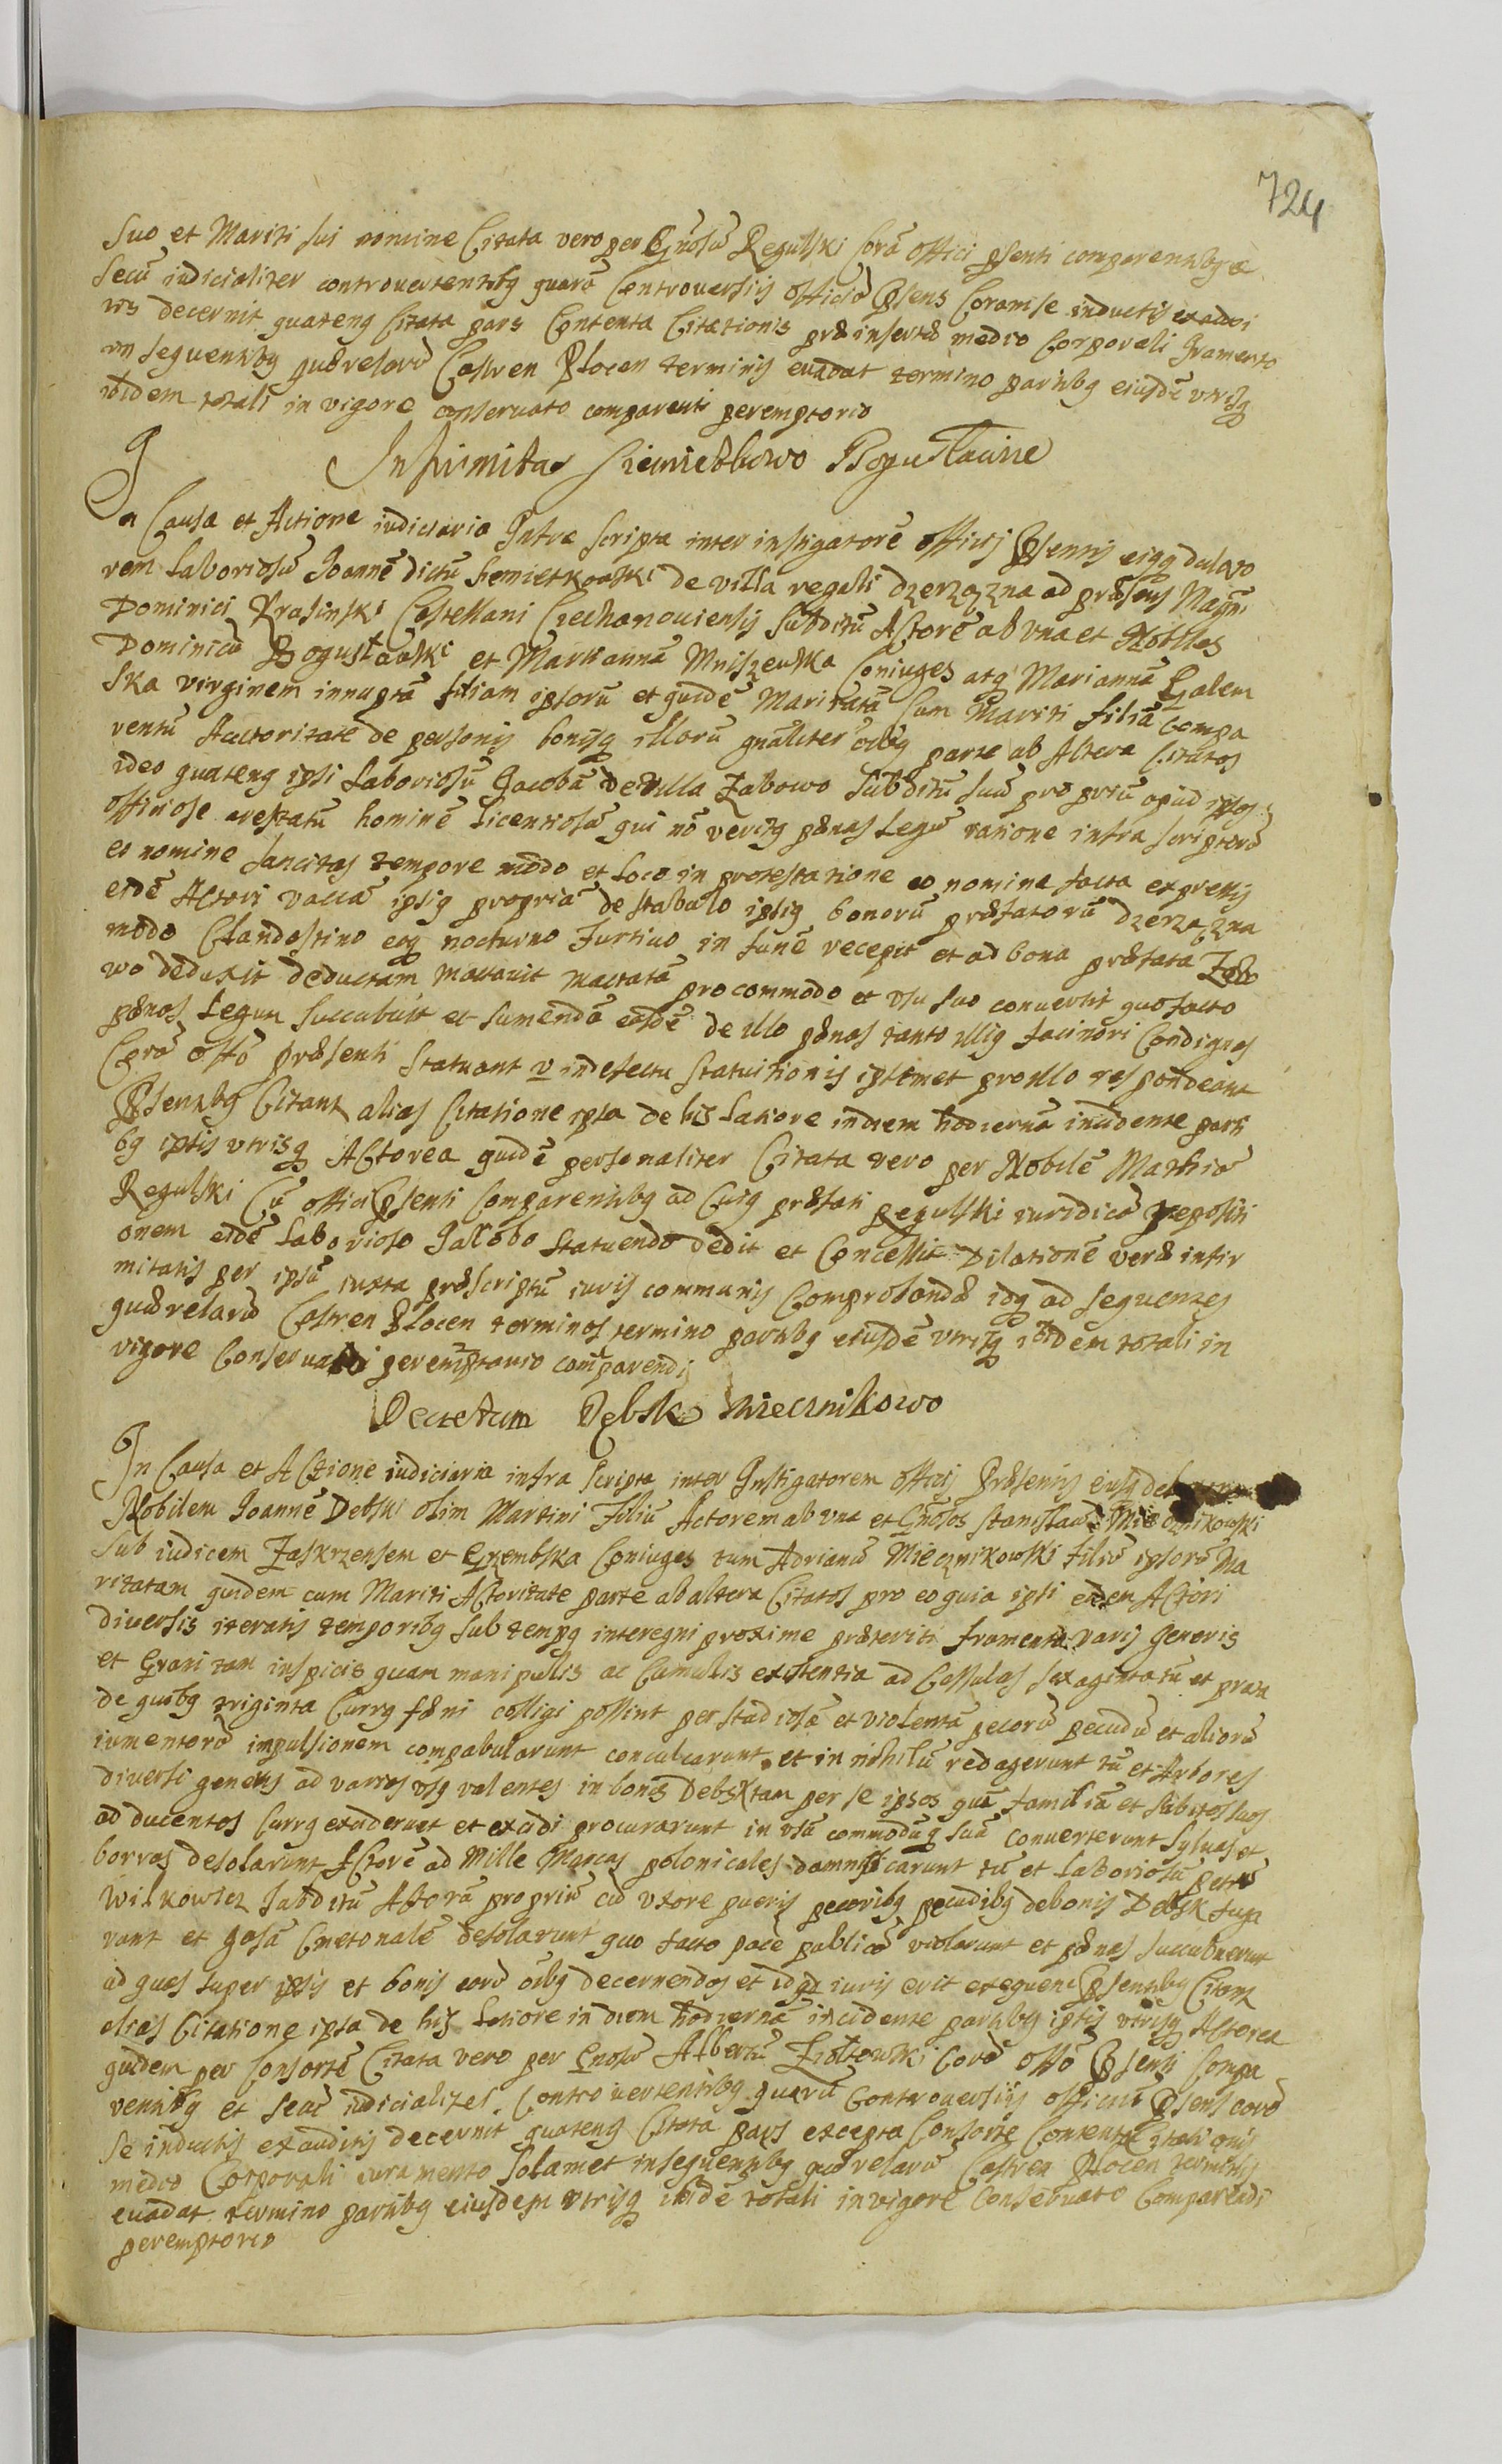 724
Suo et Mariti sui nomine Citata vero per Gñosũ Regulski Corã offici psenti comparentibg &
secũ iudicialiter controuertentibg quarũ Controuersiis officiũ Psens Coram se inductis exaudi
tis decernit quateng Citata pars Contenta Citationis præinsertæ medio Corporali Iuramento
in sequentibg quærelarũ Castren Plocen terminis euadat termino partibg eiusdẽ utrisq
ibidem totali in vigore conseruato comparenti peremptorio
Infirmitas Siemietkowo Bogusławskie
In Causa et Actione iudiciaria Intra scripta inter instigatorẽ officij Psentis eiqq delato
rem Laboriosũ Joannẽ dictũ Siemietkowski de villa regali Dzerzązna ad præsens Magni
Dominici Krasinski Castellani Ciechanouiensis subditũ Actorẽ ab una et Nobiles
Dominicũ Bogusławski et Mariannã Mniszewska Coniuges atq Mariannã Galem
ska virginem innuptã filiam ipsorũ et quidẽ Maritatã Cum Mariti filiã Compa
rentũ Auctoritate de personis bonisq illorũ gnãliter oibg parte ab Altera Citatos
ideo quateng ipsi Laboriosũ Jacobũ de villa Zabowo subditũ suũ propriũ apud ipsos
officiose arestatũ hominẽ licentiosũ qui nõ veritg pœnas Legũ ratione infra scriptorũ
eo nomine sancitas tempore modo et loco in protestatione eo nomine facta expressis
eidẽ Actori vaccã ipsig propriã de stabulo ipsig bonorũ præfatorũ Dzerzązna
modo Clandestino eoq nocturno Furtiuo in funẽ recepit et ad bona præfata Zabo
wo deduxit deductam mactauit mactatã pro commodo et usu suo conuertit quo facto
pænas Legum succubuit et sumendã easdẽ de illo pænas tanto illig facinori Condignas
Corã offõ præsenti statuant v in defectu statuitionis ipsimet pro illo respondeant
Psentibg Citant alias Citatione ipsa de his latiore in diem hodiernã incidente parti
bg ipsis utrisq Actorea quidẽ personaliter Citata vero per Nobilẽ Mathiã
Regulski Cũ offici Psenti Comparentibg ad Cuig præfati Regulski iuridicã repositi
onem eidẽ Laborioso Jacobo statuendo dedit et Concessit Dilationẽ veræ infir
mitatis per ipsũ iuxta præscriptũ iuris communis Comprobandæ idq ad sequentes
quærelarũ Castren Plocen terminos termino partibg eiusdẽ utrisq ibidem totali in
vigore Conseruati peremptorio comparendi
Decretum Dębsk Miecznikowo
In Causa et Actione iudiciaria infra scripta inter Instigatorem officij Præsentis eiusq
Nobilem Joannẽ Debski olim Martini Filiũ Actorem ab una et Gñosos Stanisław Miecznikowski
Sub iudicem Zaskrzensem et Grzembska Coniuges tum Adrianũ Miecznikowski filiũ ipsorũ Ma
ritatam quidem cum Mariti Actoritate parte ab altera Citatos pro eo quia ipsi eidem Actori
diuersis iteratis temporibg sub tempg interegni proxime præteriti frumenta varij Generis
et Grani tam in spicis quam manipulis ac Cumulis existentia ad Cassulas sexagintatũ et prata
de quibg triginta Currg fæni colligi possint per stadiosã et violentã pecorũ pecudũ et aliorũ
iumentorũ impulsionem compabularunt conculcarunt et in nihilũ redagerunt tũ et Arbores
diuersi generis ad varios usg valentes in bonis Debsk tam per se ipsos quã familiã et subitos suos
ad ducentos Currg exciderunt et excidi procurarunt in usũ commodũq suũ Conuerterunt Syluas et
borras desolarunt Actorẽ ad Mille Marcas polonicales damnificarunt tũ et Laboriosũ petrũ
Wilkowicz subditũ Actorũ propriũ cũ uxore pueris pecoribg pecudibg de bonis Debsk fuga
runt et gosã Cmetonalẽ desolarunt quo facto pacẽ publicã violarunt et pænas succubuerunt
ad quas super ipsis et bonis eorũ oibg decernendos et idq iuris erit exequend Psentibg Citant
alias Citatione ipsa de his latiore in diem hodiernã incidente partibg ipsis utrisq Actorea
quidem per Consortẽ Citata vero per Gnosũ Albertũ Ziołkowski Corã offõ Psenti Compa
rentibg et secũ iudicialiter Controuertentibg quarũ Controuersijs officiũ Psens corã
se inductis exauditis decernit quateng Citata pars excepta Consorte Contenta Citationis
medio Corporali iuramento solamet in sequentibg quærelarũ Castren Plocen terminis
euadat termino partibg eiusdem utrisq ibidẽ totali in vigore Conseruato Comparendi
peremptorio